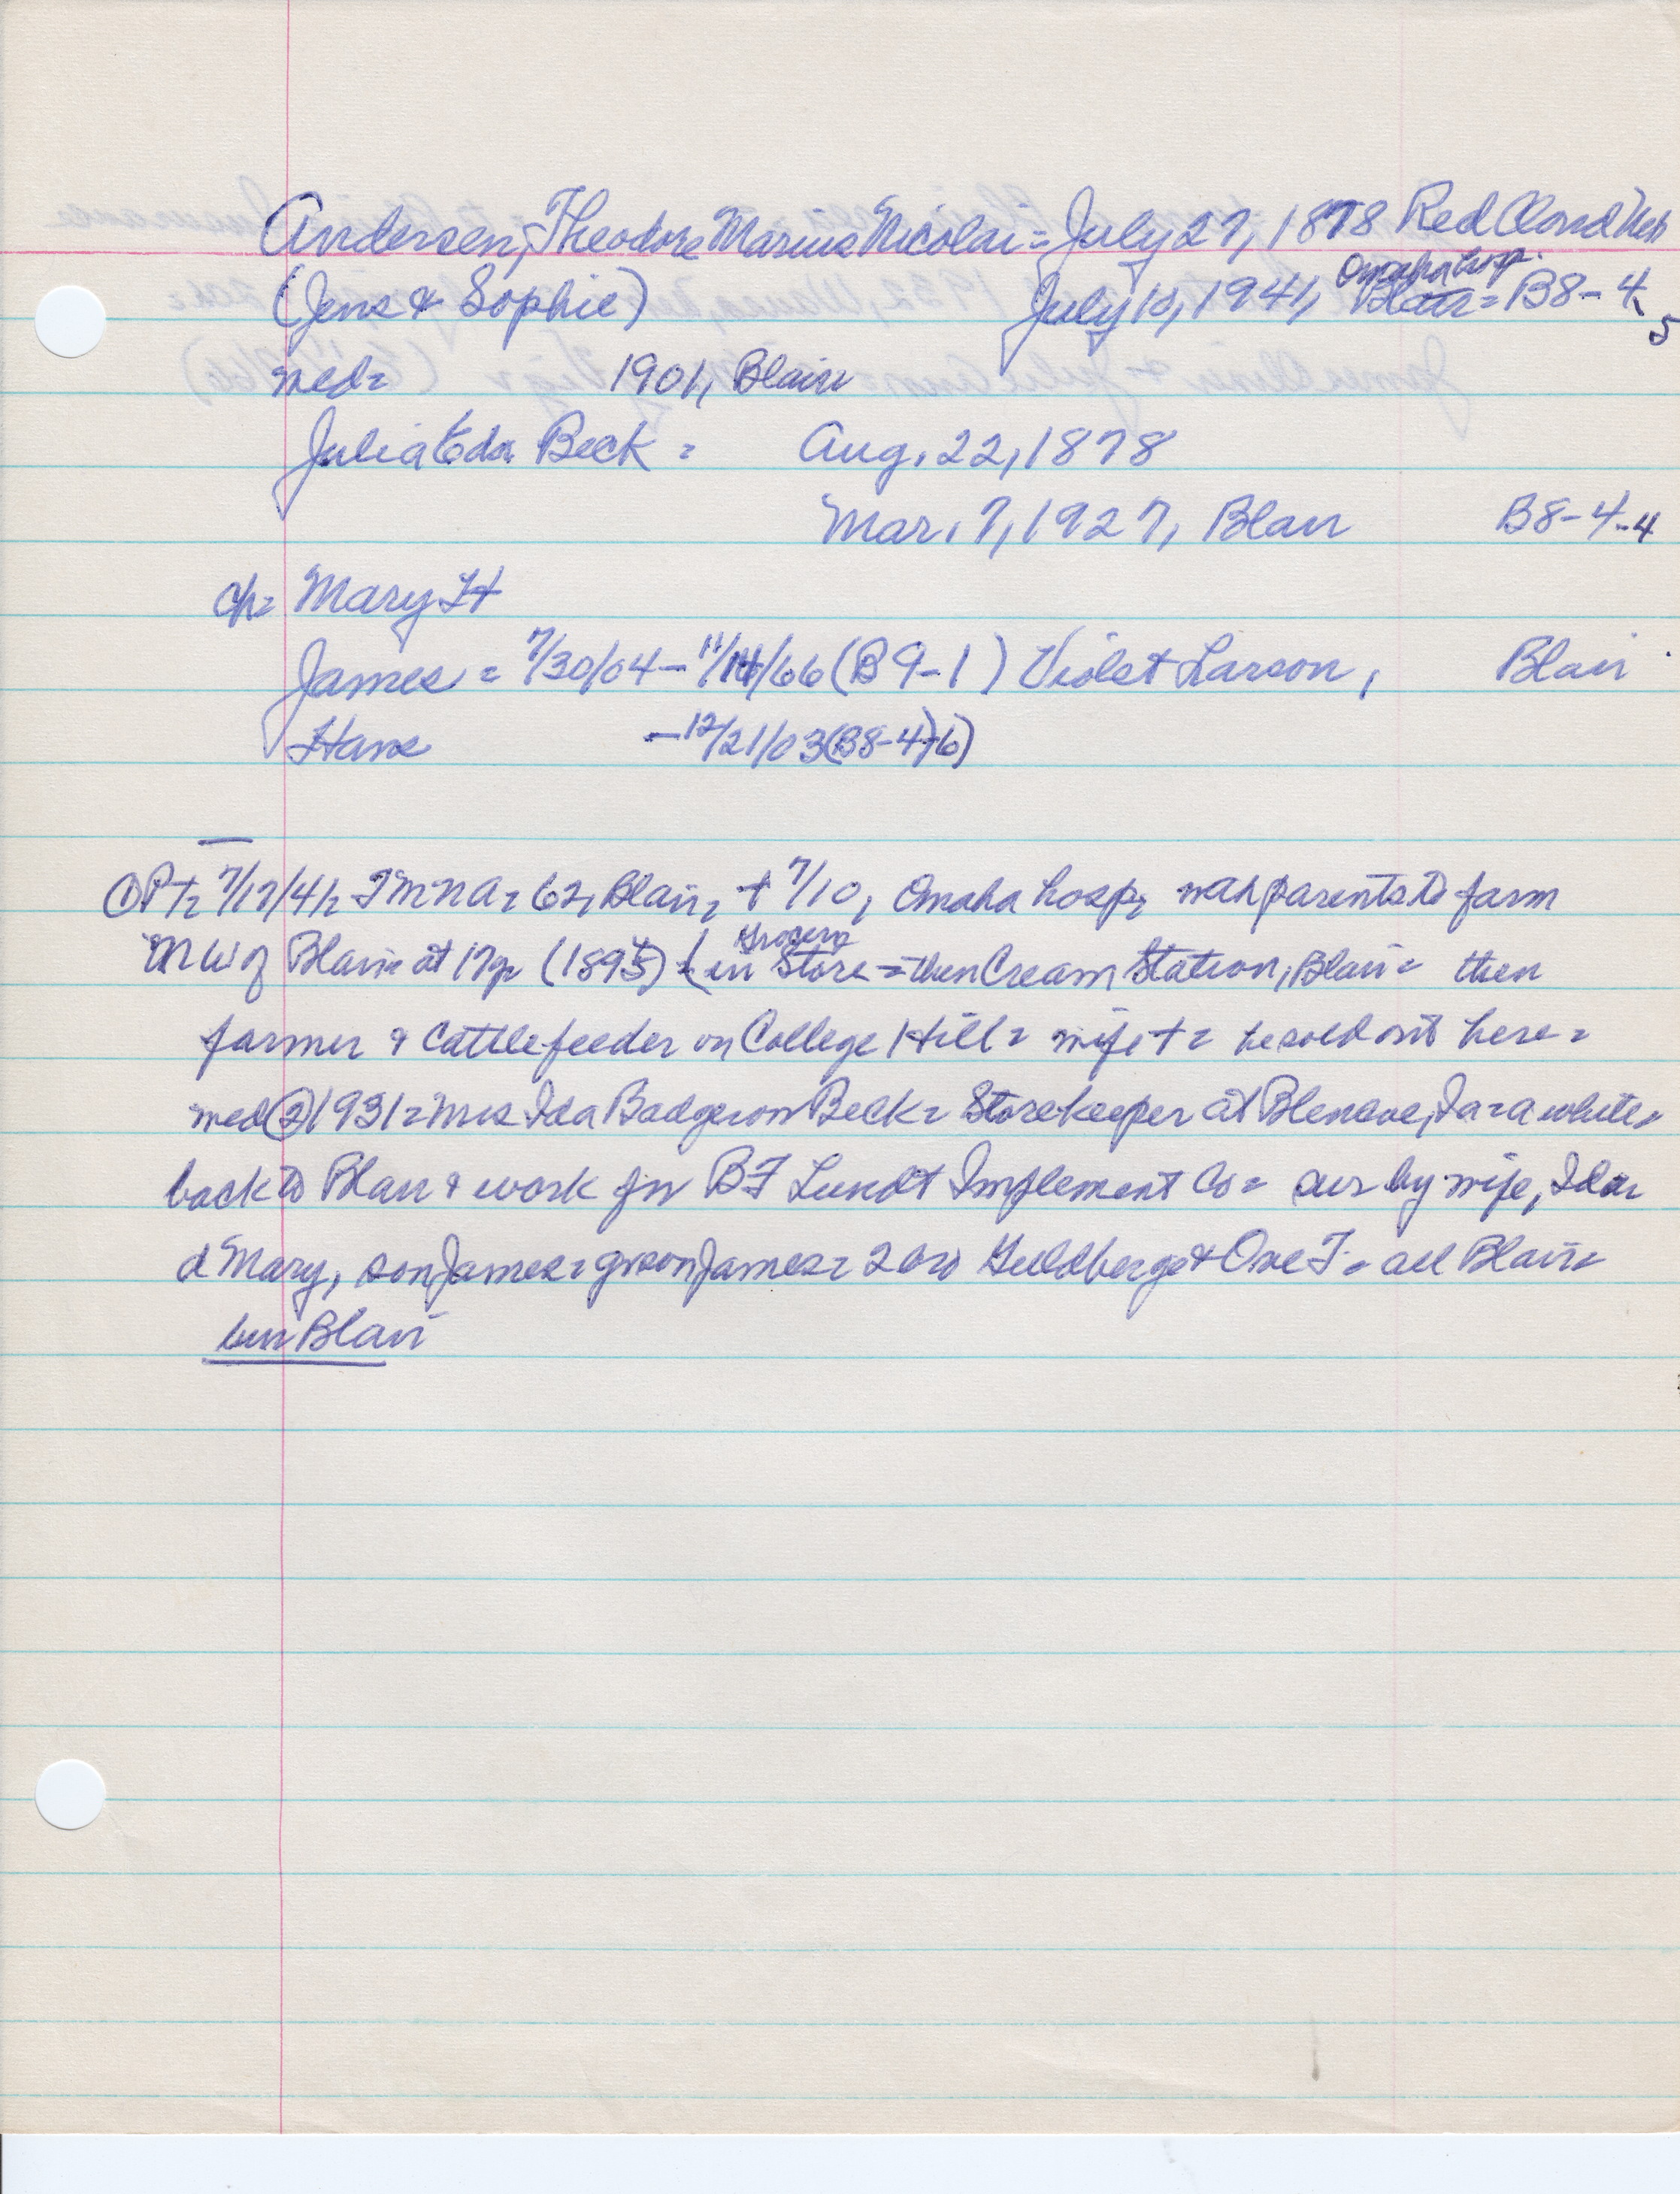 Andersen, Theodore Marius Nicolai = July 27, 1878 Red Cloud Neb
(Jens & Sophie) July 10, 1941, Omaha hosp. Blair = B8-4-5
med = 1901, Blair
Julia Eda Beck = Aug. 22, 1878
Mar. 7, 1927, Blair B8-4-4
ch = Mary H
James = 7/30/04 - 11/14/66 (B9-1) Violet Larson, Blair
Hans - 12/21/03 (B8-4-6)
① Pt = 7/17/41 = TMNA = 62, Blair, + 7/10, Omaha hosp = parents to farm
NW of Blair = at 17y = (1895) (in Grocery Store = then Cream Station, Blair = then
farmer & cattle feeder on College Hill = wife + = he sold out here =
med ② 1931 = Mrs Ida Badgerow Beck = Storekeeper at Blencoe, Ia = a while =
back to Blair & work for BF Lundt Implement Co = sur by wife, Ida
d Mary, son James = grson James = 2 bro Guldberg & Ove T = all Blair =
bur Blair